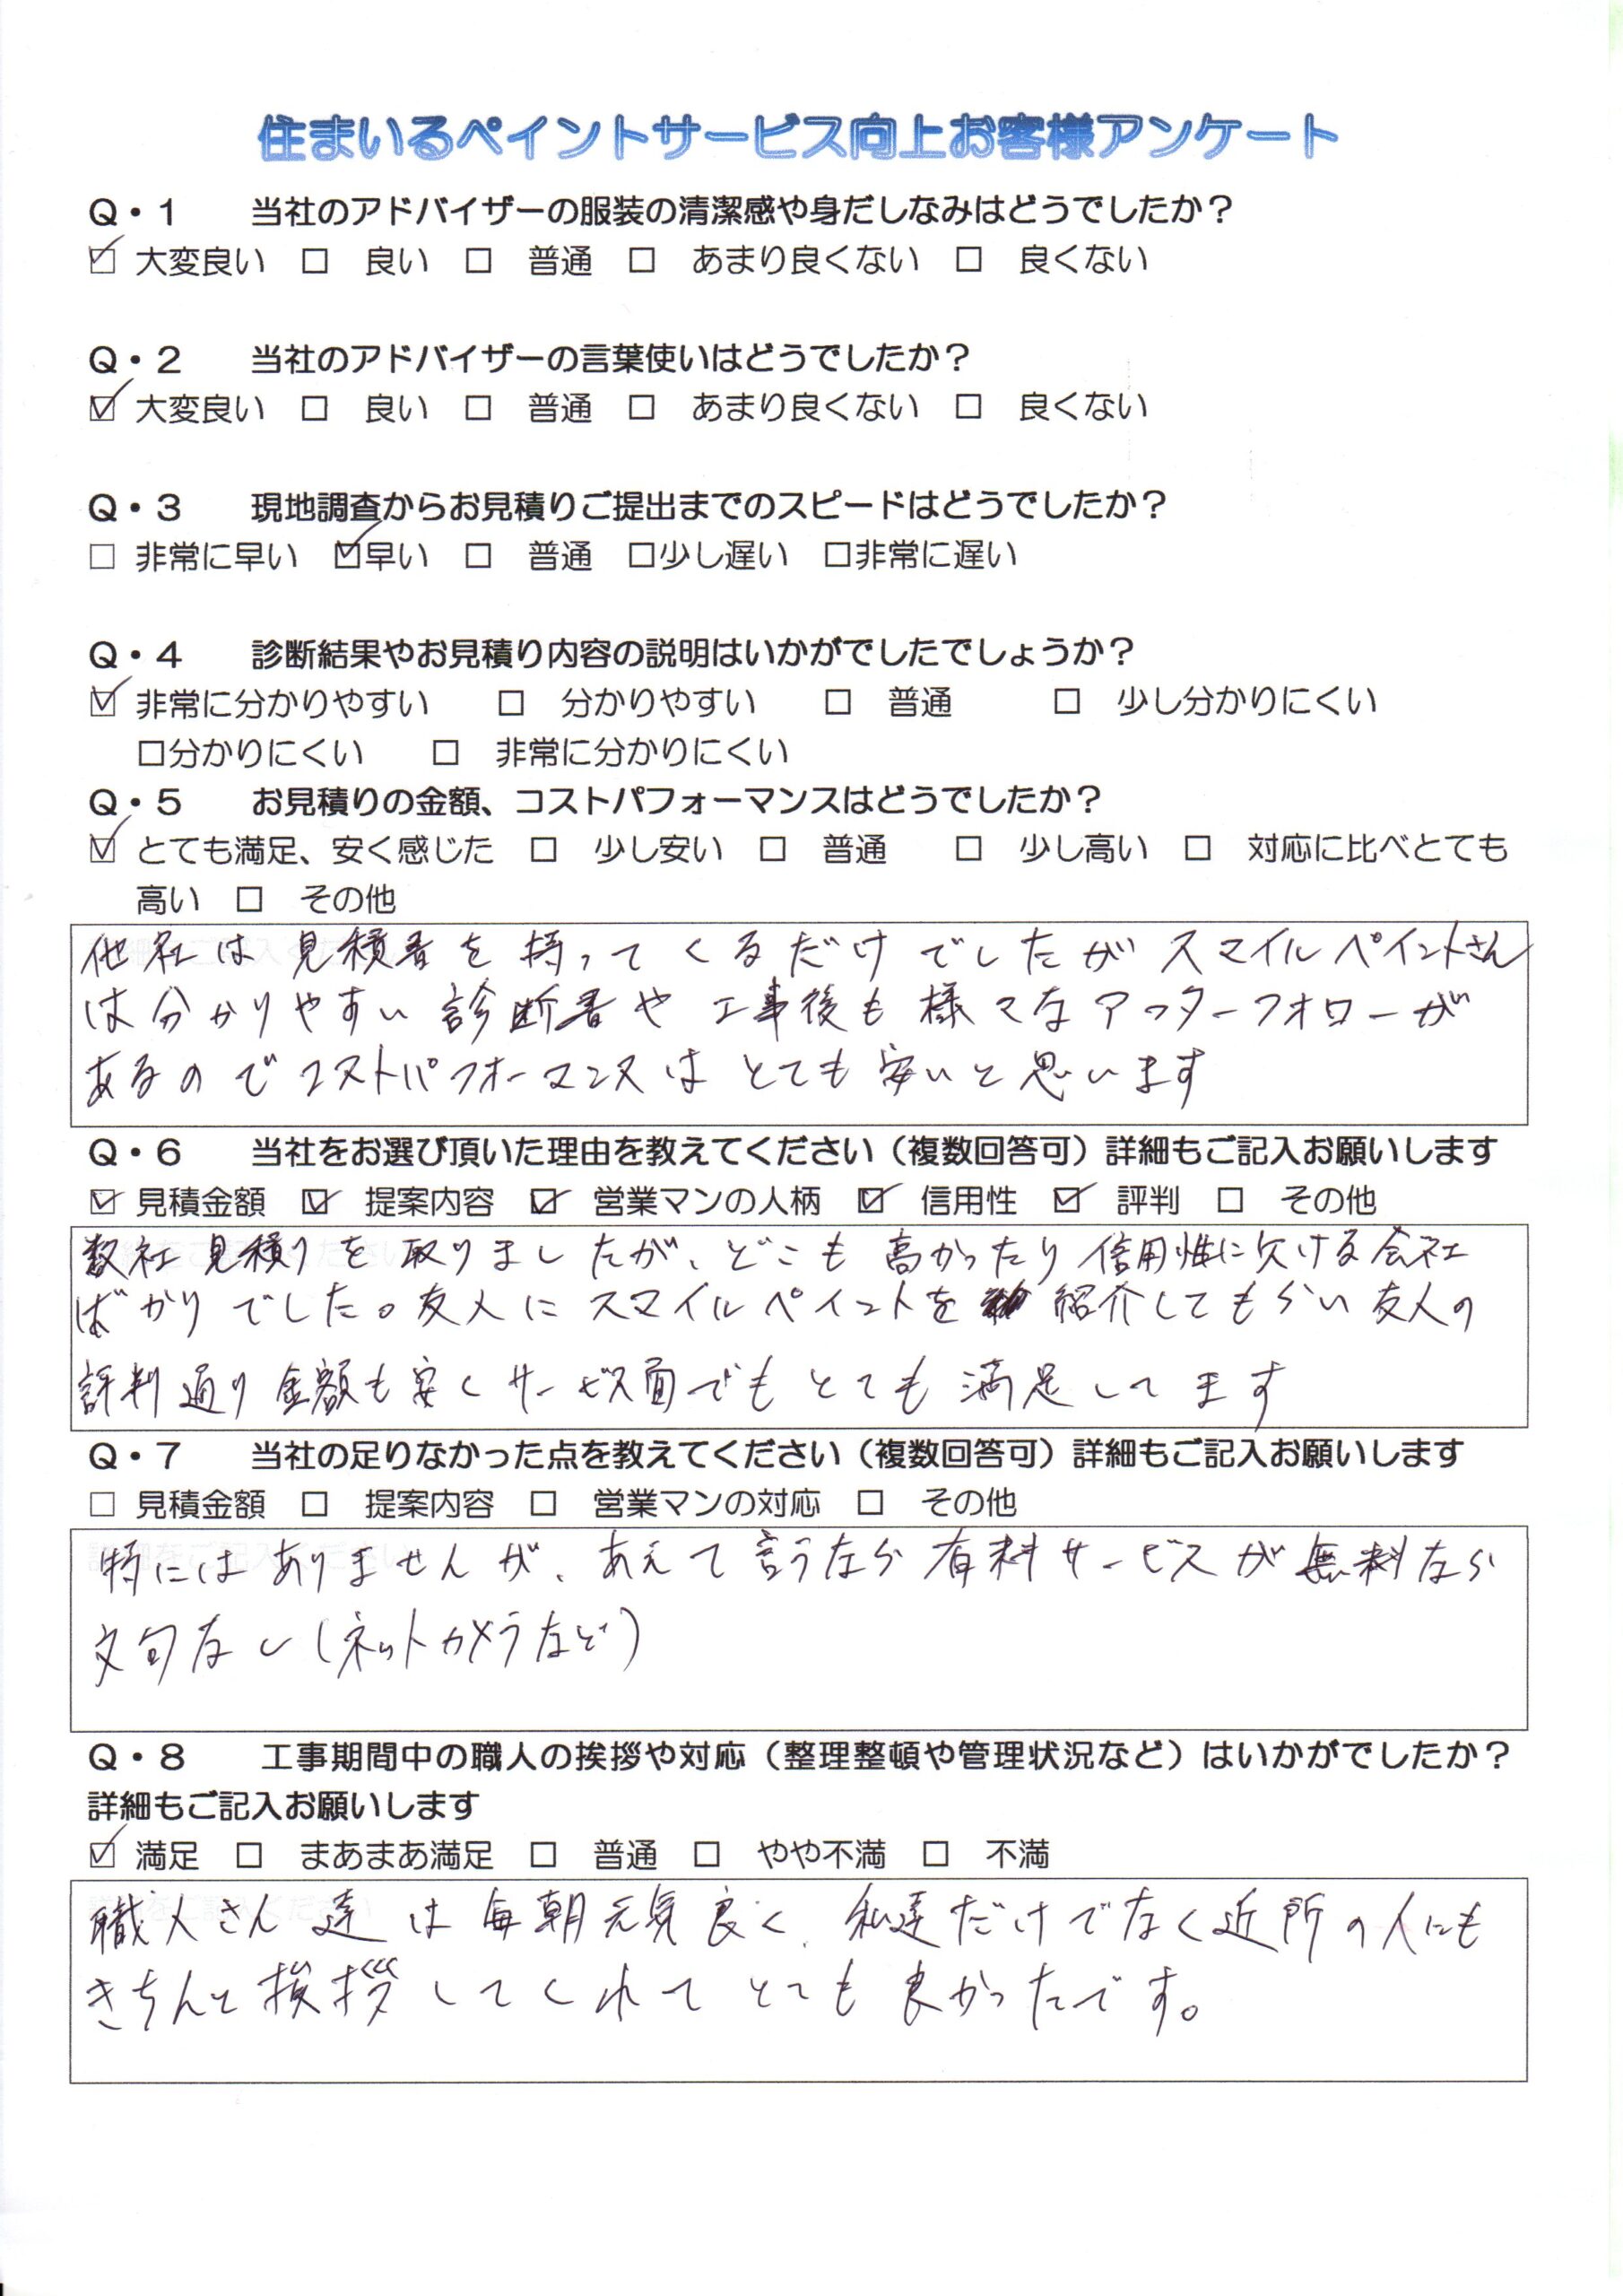 住まいるペイントサービス向上お客様アンケート
Q・1　当社のアドバイザーの服装の清潔感や身だしなみはどうでしたか？
☑ 大変良い　□　良い　□　普通　□　あまり良くない　□　良くない
Q・2　当社のアドバイザーの言葉使いはどうでしたか？
☑ 大変良い　□　良い　□　普通　□　あまり良くない　□　良くない
Q・3　現地調査からお見積りご提出までのスピードはどうでしたか？
□ 非常に早い　☑早い　□　普通　□少し遅い　□非常に遅い
Q・4　診断結果やお見積り内容の説明はいかがでしたでしょうか？
☑ 非常に分かりやすい　□　分かりやすい　□　普通　□　少し分かりにくい
□分かりにくい　□　非常に分かりにくい
Q・5　お見積りの金額、コストパフォーマンスはどうでしたか？
☑ とても満足、安く感じた　□　少し安い　□　普通　□　少し高い　□　対応に比べとても
高い　□　その他
他社は見積書を持ってくるだけでしたがスマイルペイントさん
は分かりやすい診断書や工事後も様々なアフターフォローが
あるのでコストパフォーマンスはとても安いと思います
Q・6　当社をお選び頂いた理由を教えてください（複数回答可）詳細もご記入お願いします
☑ 見積金額　☑　提案内容　☑　営業マンの人柄　☑　信用性　☑　評判　□　その他
数社見積りを取りましたが、どこも高かったり信用性に欠ける会社
ばかりでした。友人にスマイルペイントを紹介してもらい友人の
評判通り金額も安くサービス面でもとても満足してます
Q・7　当社の足りなかった点を教えてください（複数回答可）詳細もご記入お願いします
□ 見積金額　□　提案内容　□　営業マンの対応　□　その他
特にはありませんが、あえて言うなら有料サービスが無料なら
文句なし（ネットカメラなど）
Q・8　工事期間中の職人の挨拶や対応（整理整頓や管理状況など）はいかがでしたか？
詳細もご記入お願いします
☑ 満足　□　まあまあ満足　□　普通　□　やや不満　□　不満
職人さん達は毎朝元気良く、私達だけでなく近所の人にも
きちんと挨拶してくれてとても良かったです。